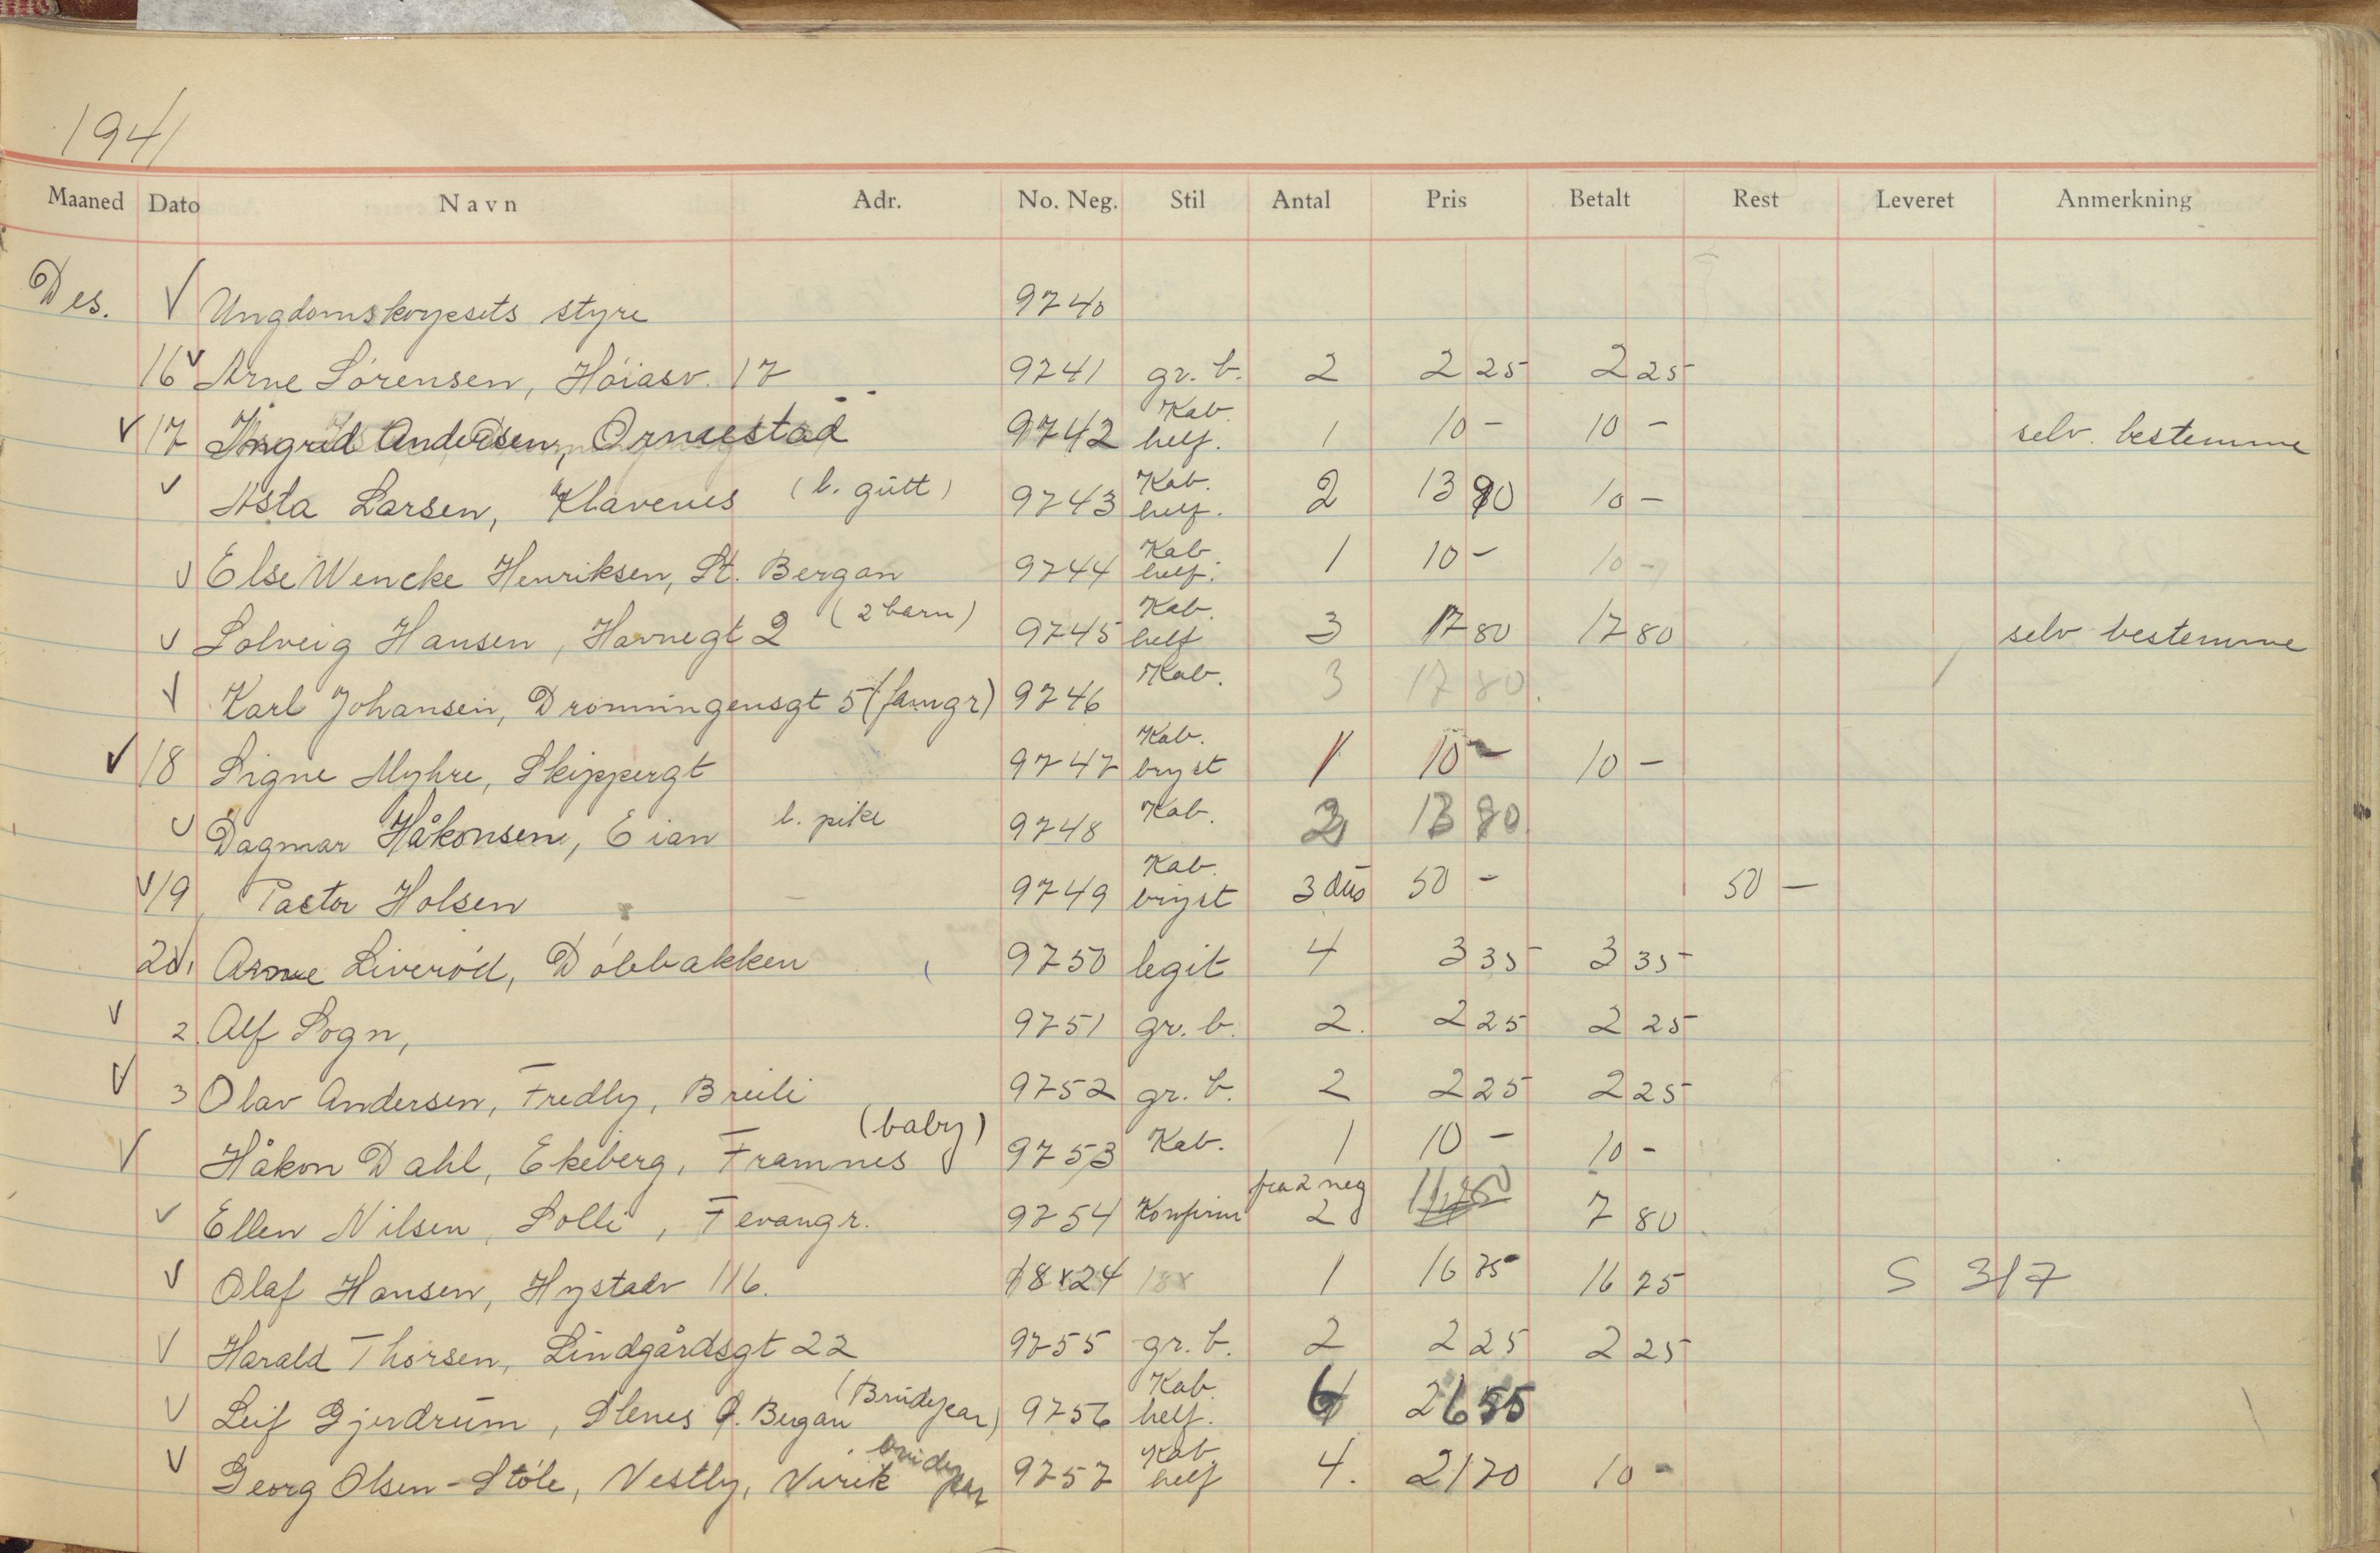 1941
Maaned Dato Navn Adr. No. Neg. Stil Antal Pris Betalt Rest Leveret Anmerkning
Des. V Ungdomskorpsets styre 9740
16 v Arne Sörensen, Höiasv. 17 9741 gr. b. 2 2 25 2 25
v 17 Ingrid Andersen, Ormestad 9742 Kab. helf. 1 10 - 10 - selv. bestemme
v Asta Larsen, Klavenes (l. gutt) 9743 Kab. helf. 2 13 80 10 -
v Else Wencke Henriksen, St. Bergan 9744 Kab helf. 1 10 - 10 -
v Solveig Hansen, Havnegt 2 (2 barn) 9745 Kab. helf 3 17 80 17 80 selv bestemme
V Karl Johansen, Dronningensgt 5 (famgr) 9746 Kab. 3 17 80.
v 18 Signe Myhre, Skippergt 9747 Kab. bryst 1 10 - 10 -
v Dagmar Håkonsen, Eian l. pike 9748 Kab. 2 13 80
v 19 Pastor Holsen 9749 Kab. bryst 3 dus 50 - 50 -
20 Arne Liveröd, Dölebakken 9750 legit 4 3 35 3 35
v 2 Alf Sogn, 9751 gr. b. 2. 2 25 2 25
V 3 Olav Andersen, Fredly, Breili 9752 gr. b. 2 2 25 2 25
V Håkon Dahl, Ekeberg, Framnes (baby) 9753 Kab. 1 10 - 10 -
v Ellen Nilsen, Solli, Tevangr. 9754 Konfirm fra 2 neg 2 7 80
V Olaf Hansen, Hystadv 116. 18x24 18x 1 16 75 16 75 S 3/7
V Harald Thorsen, Lindgårdsgt 22 9755 gr. b. 2 2 25 2 25
V Leif Gjerdrum, Stenes Bergan (Brudepar) 9756 Kab. helf. 6 26 55
V Georg Olsen-Stöle, Vestly, Virik brudepar 9757 Kab. helf 4. 21 70 10 -